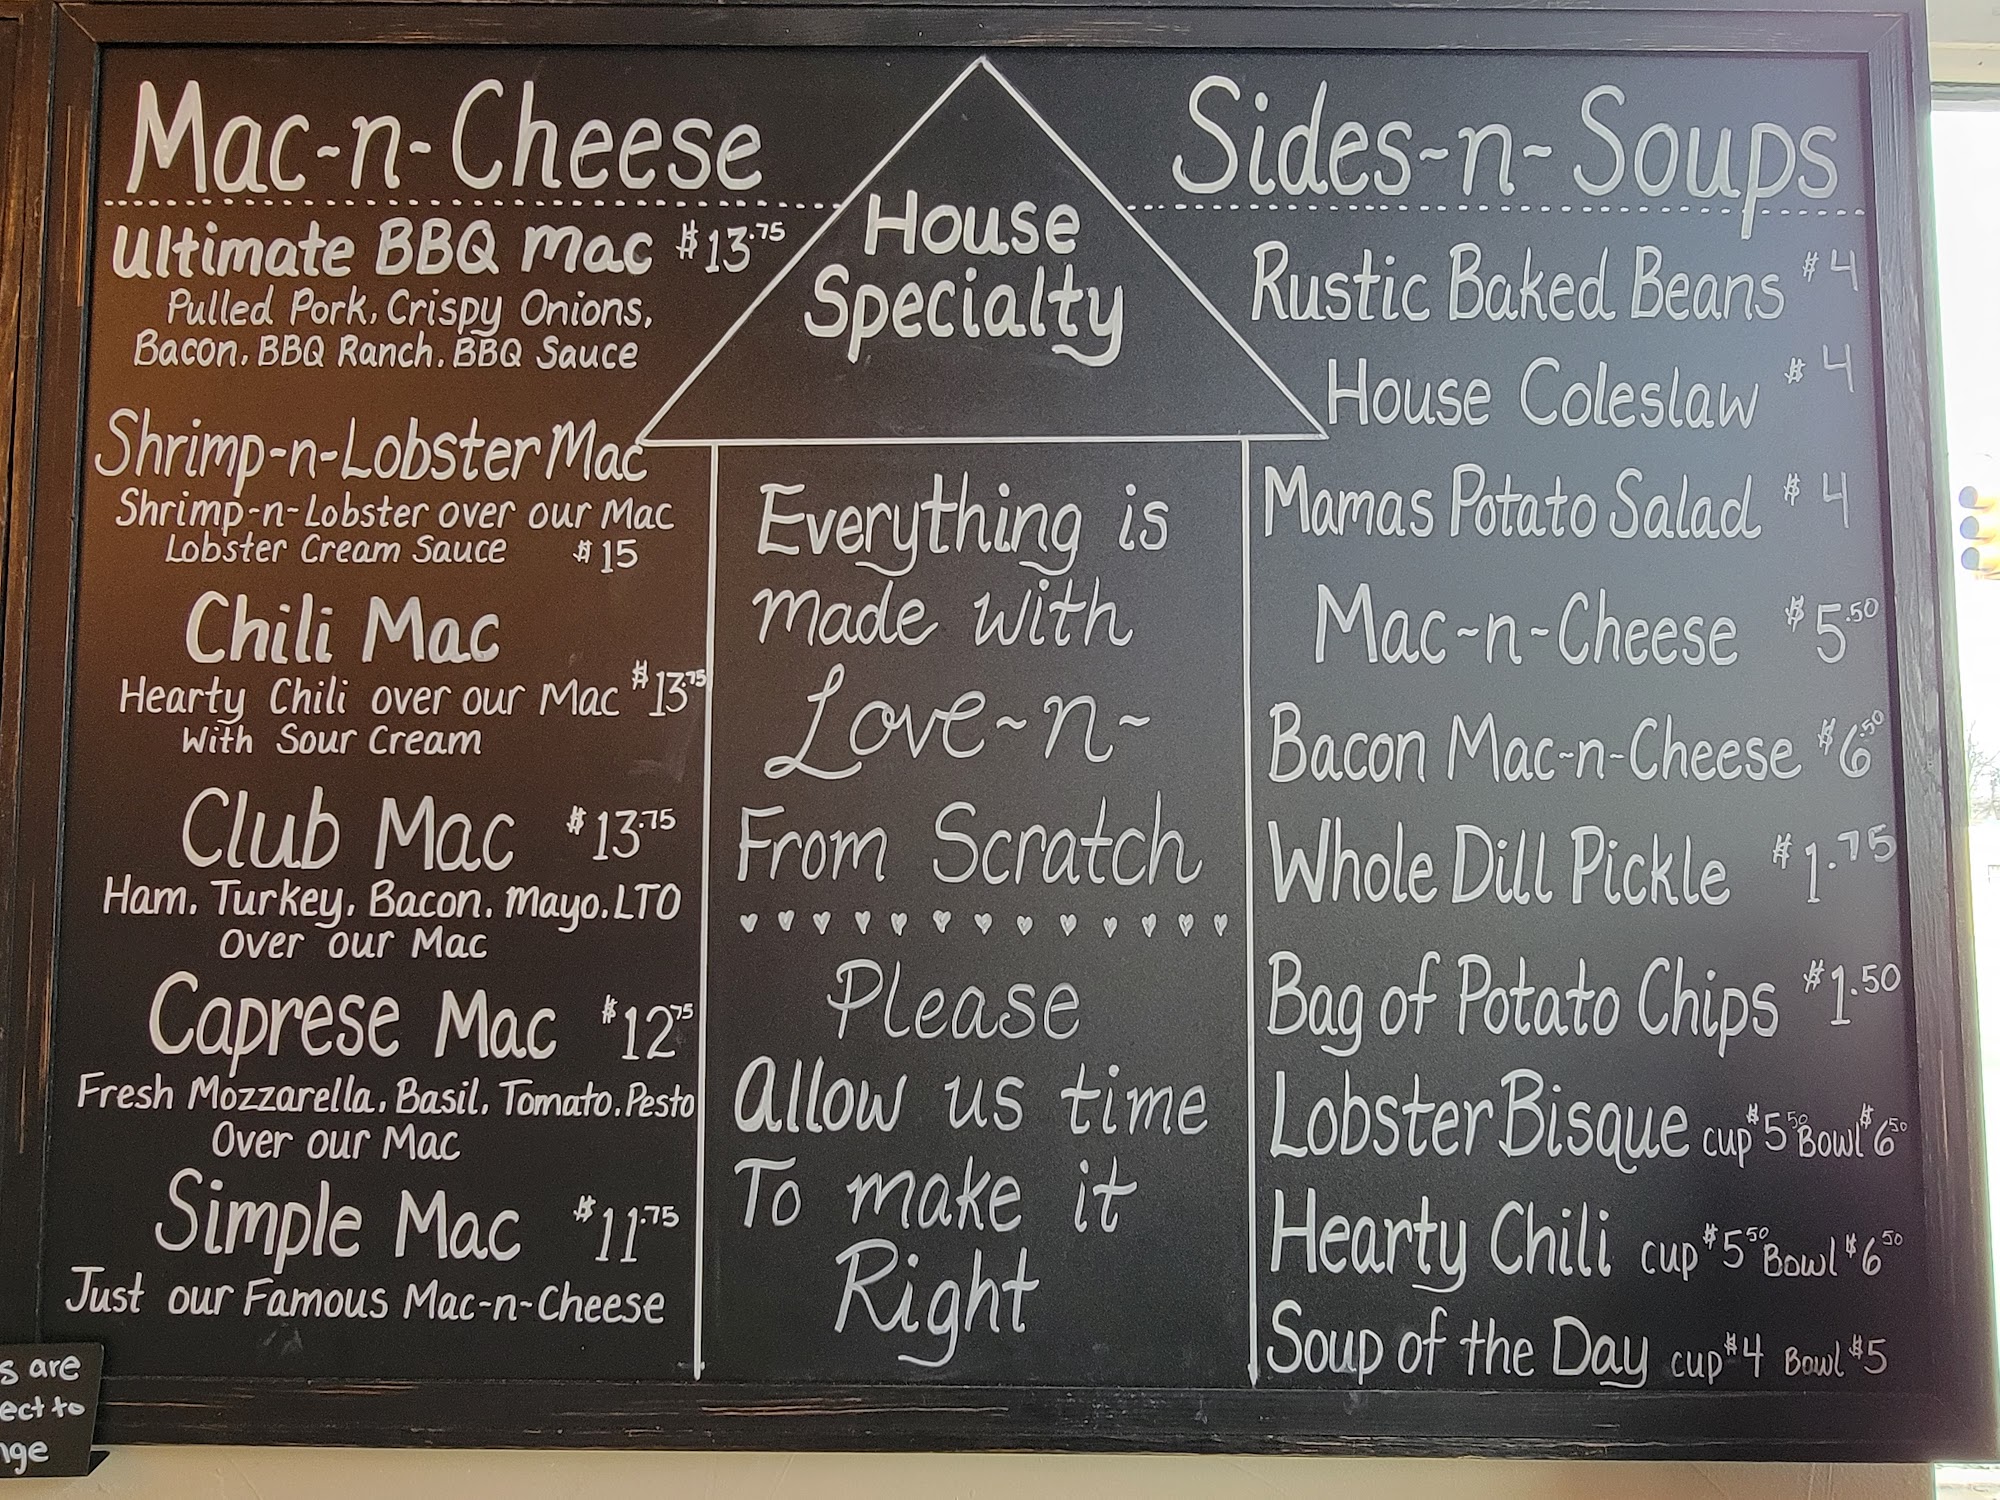 Mac-n-Cheese
Ultimate BBQ Mac $13.75
Pulled Pork, Crispy Onions,
Bacon, BBQ Ranch, BBQ Sauce
Shrimp-n-Lobster Mac
Shrimp-n-Lobster over our Mac
Lobster Cream Sauce $15
Chili Mac
Hearty Chili over our Mac $13.75
With Sour Cream
Club Mac $13.75
Ham, Turkey, Bacon, Mayo, LTO
Over our Mac
Caprese Mac $12.75
Fresh Mozzarella, Basil, Tomato, Pesto
Over our Mac
Simple Mac $11.75
Just our Famous Mac-n-Cheese
House
Specialty
Everything is
made with
Love-n-
From Scratch
Please
Allow us time
To make it
Right
Sides-n-Soups
Rustic Baked Beans $4
House Coleslaw $4
Mamas Potato Salad $4
Mac-n-Cheese $5.50
Bacon Mac-n-Cheese $6.50
Whole Dill Pickle $1.75
Bag of Potato Chips $1.50
Lobster Bisque cup $5.50 Bowl $6.50
Hearty Chili cup $5.50 Bowl $6.50
Soup of the Day cup $4 Bowl $5
s are
ect to
nge